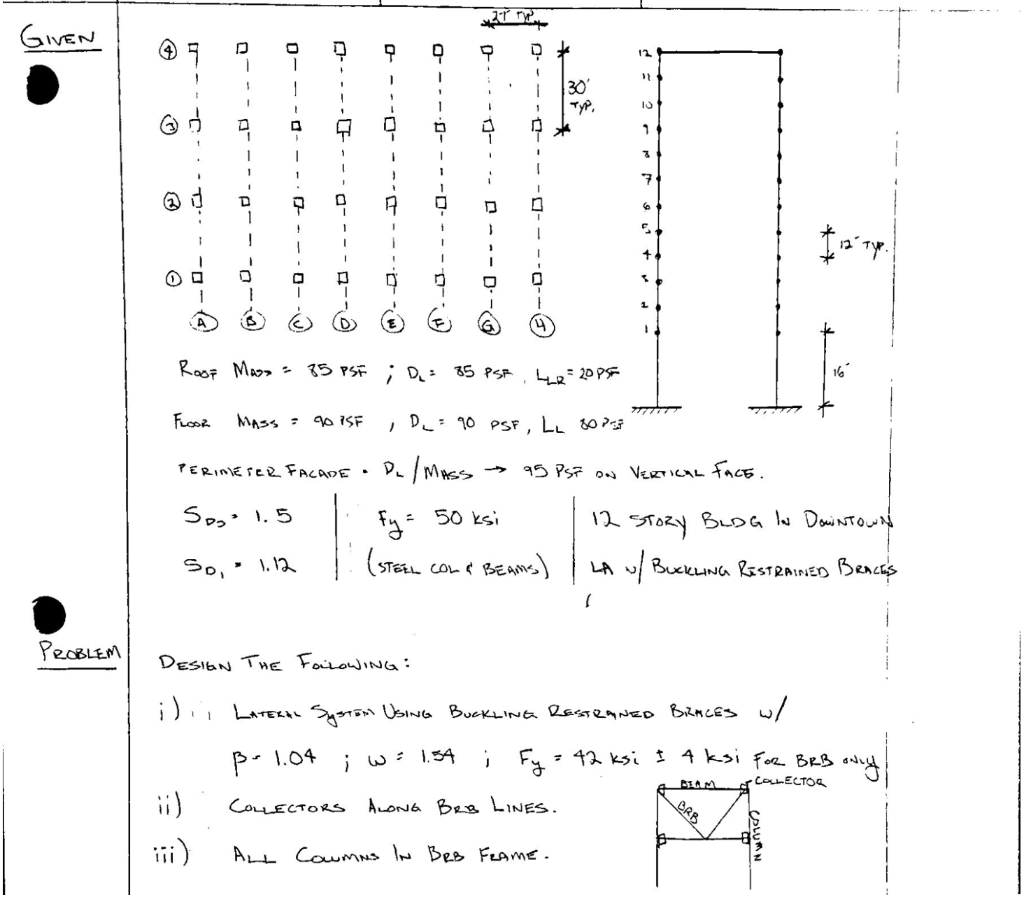 GIVEN
27' TYP.
4
30'
TYP.
3
2
1
A B C D E F G H
12
11
10
9
8
7
6
5
4
3
2
1
12' TYP.
16'
ROOF MASS = 85 PSF ; DL = 85 PSF, LLR = 20 PSF
FLOOR MASS = 90 PSF , DL = 90 PSF, LL 80 PSF
PERIMETER FACADE = DL/MASS → 95 PSF ON VERTICAL FACE.
SDS = 1.5
Fy = 50 ksi
12 STORY BLDG IN DOWNTOWN
SD1 = 1.12
(STEEL COL & BEAMS)
LA W/ BUCKLING RESTRAINED BRACES
PROBLEM
DESIGN THE FOLLOWING:
i) LATERAL SYSTEM USING BUCKLING RESTRAINED BRACES W/
β = 1.04 ; ω = 1.54 ; Fy = 42 ksi ± 4 ksi FOR BRB ONLY
ii) COLLECTORS ALONG BRB LINES.
iii) ALL COLUMNS IN BRB FRAME.
BEAM
COLLECTOR
BRB
COLUMN